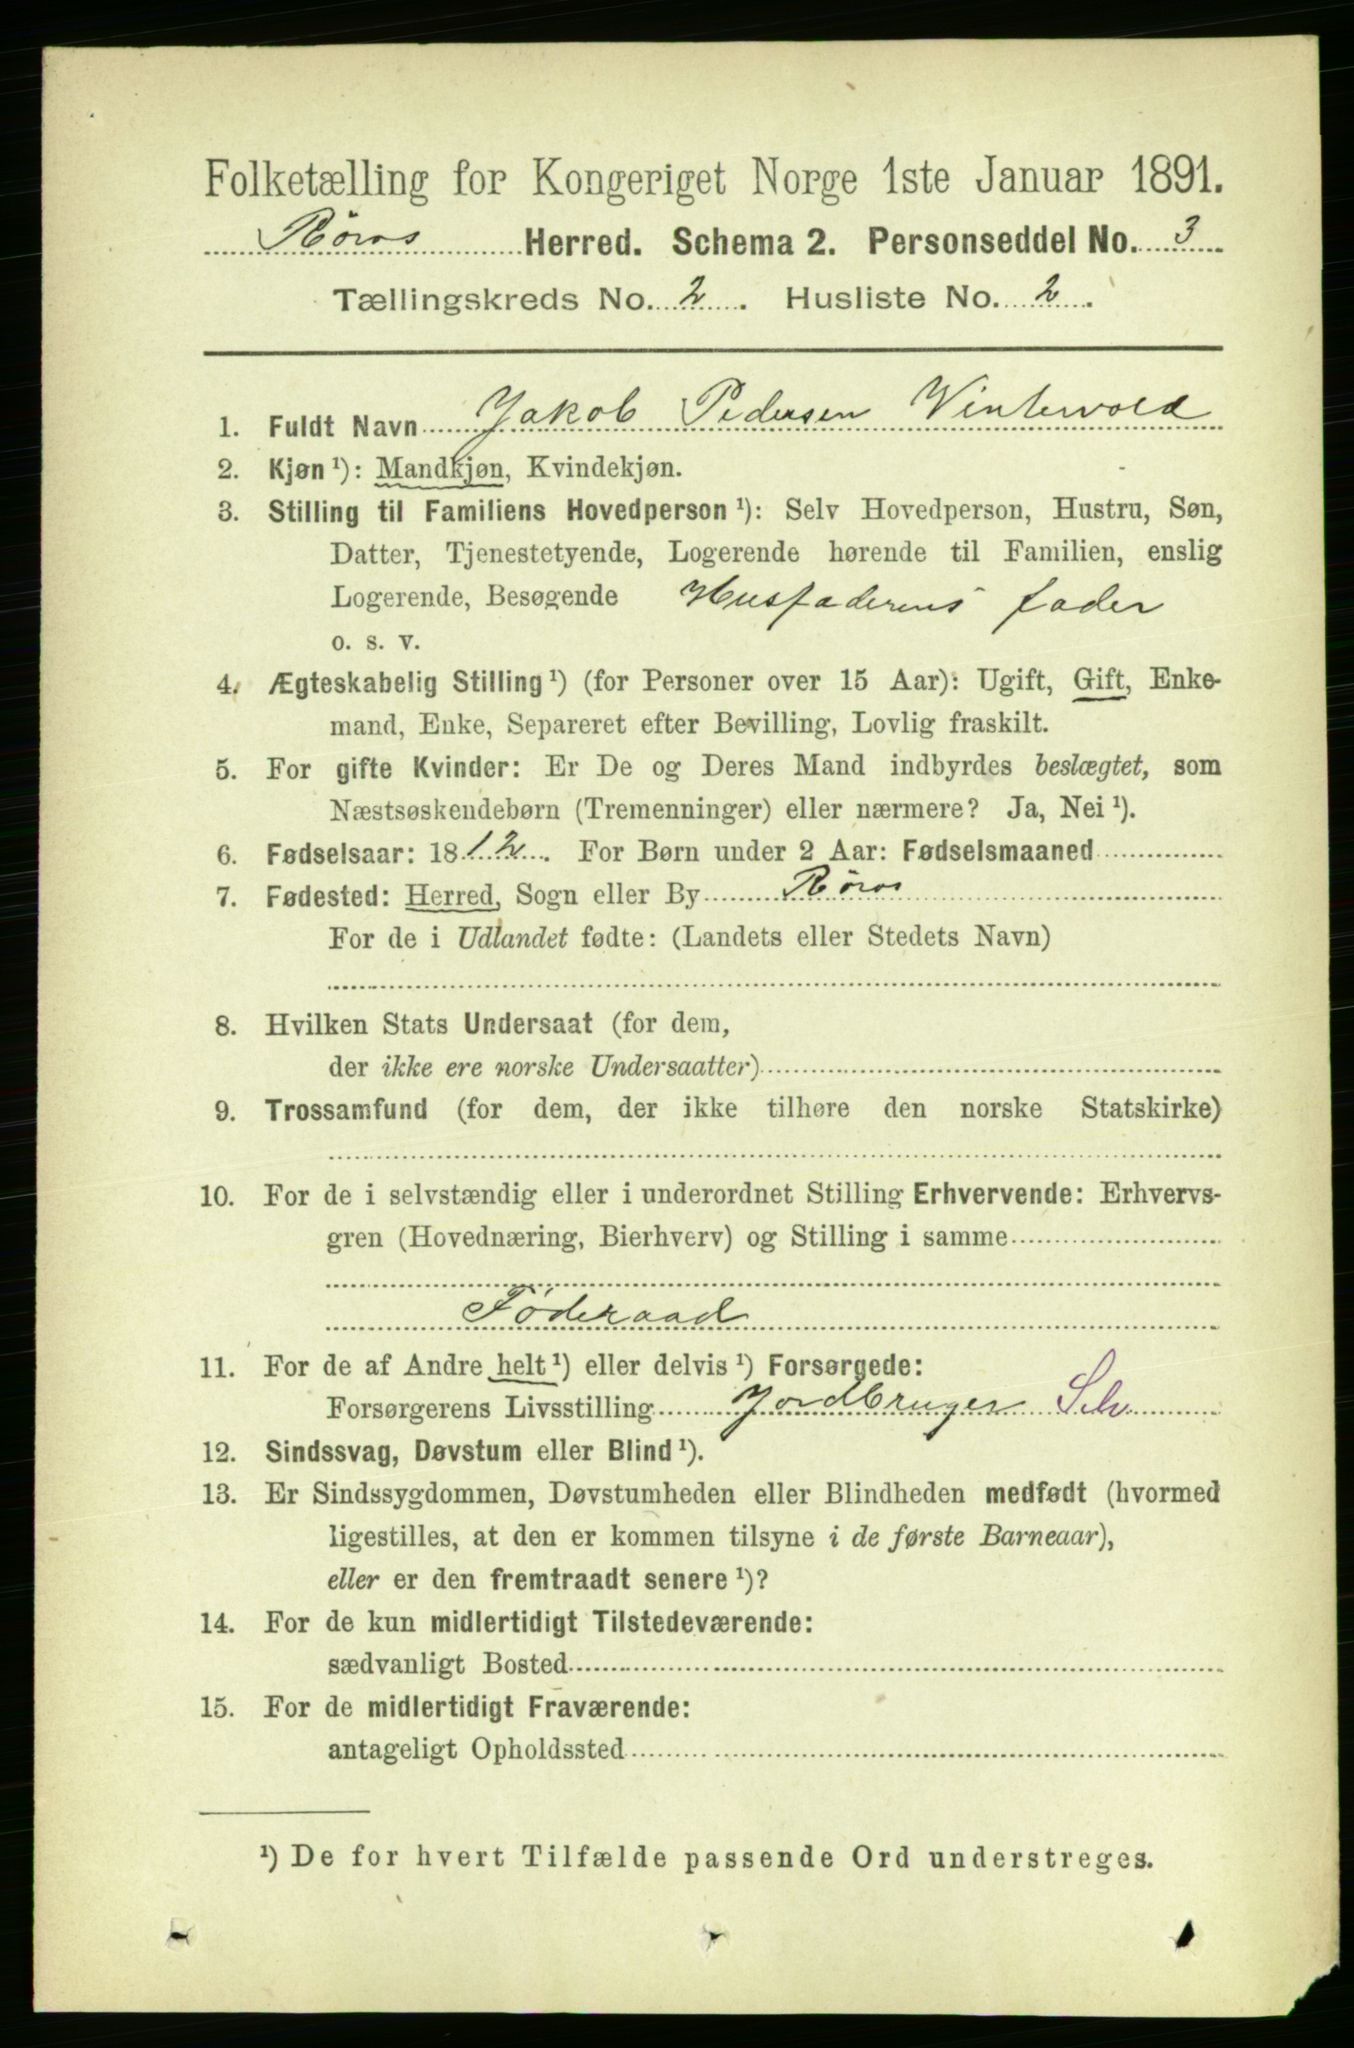 Folketælling for Kongeriget Norge 1ste Januar 1891.
Røros Herred. Schema 2. Personseddel No. 3
Tællingskreds No. 2. Husliste No. 2.
1. Fuldt Navn Jakob Pedersen Vintervold
2. Kjøn ¹): Mandkjøn, Kvindekjøn.
3. Stilling til Familiens Hovedperson ¹): Selv Hovedperson, Hustru, Søn,
Datter, Tjenestetyende, Logerende hørende til Familien, enslig
Logerende, Besøgende Husfaderens fader
o. s. v.
4. Ægteskabelig Stilling ¹) (for Personer over 15 Aar): Ugift, Gift, Enke-
mand, Enke, Separeret efter Bevilling, Lovlig fraskilt.
5. For gifte Kvinder: Er De og Deres Mand indbyrdes beslægtet, som
Næstsøskendebørn (Tremenninger) eller nærmere? Ja, Nei ¹).
6. Fødselsaar: 1812. For Børn under 2 Aar: Fødselsmaaned
7. Fødested: Herred, Sogn eller By Røros
For de i Udlandet fødte: (Landets eller Stedets Navn)
8. Hvilken Stats Undersaat (for dem,
der ikke ere norske Undersaatter)
9. Trossamfund (for dem, der ikke tilhøre den norske Statskirke)
10. For de i selvstændig eller i underordnet Stilling Erhvervende: Erhvervs-
gren (Hovednæring, Bierhverv) og Stilling i samme
Føderaad
11. For de af Andre helt ¹) eller delvis ¹) Forsørgede:
Forsørgerens Livsstilling Jordbruger Selv
12. Sindssvag, Døvstum eller Blind ¹).
13. Er Sindssygdommen, Døvstumheden eller Blindheden medfødt (hvormed
ligestilles, at den er kommen tilsyne i de første Barneaar),
eller er den fremtraadt senere ¹)?
14. For de kun midlertidigt Tilstedeværende:
sædvanligt Bosted
15. For de midlertidigt Fraværende:
antageligt Opholdssted
¹) De for hvert Tilfælde passende Ord understreges.